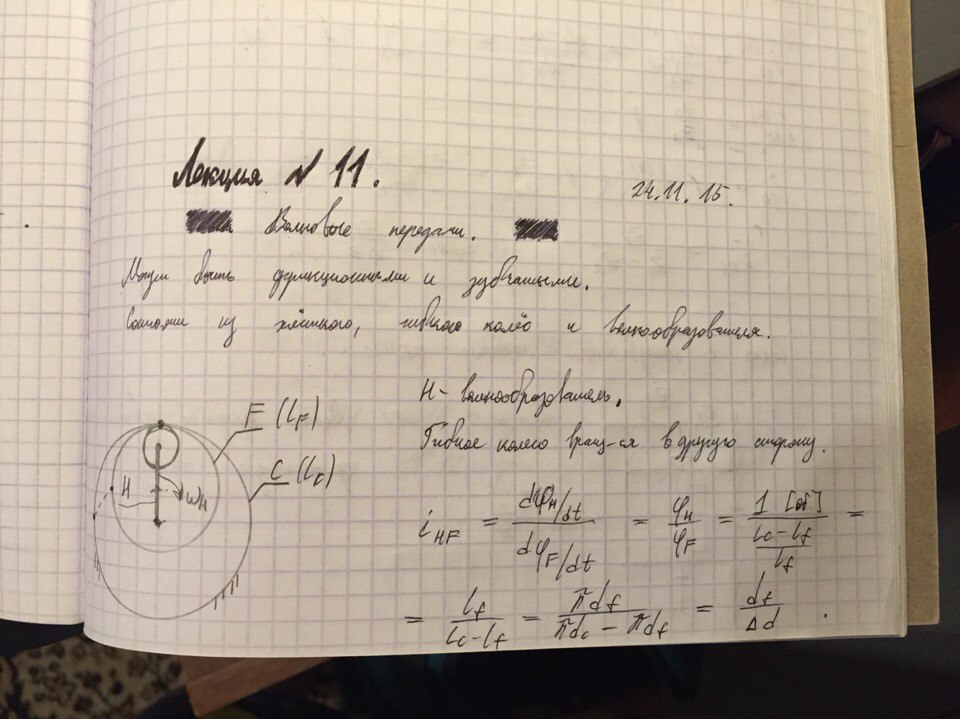 Лекция № 11.
24.11.15.
Волновые передачи.
Могут быть фрикционными и зубчатыми.
Состоят из жёсткого, гибкого колёс и волнообразователя.
H - волнообразователь.
Гибкое колесо вращ-ся в другую сторону.
F (l_F)
C (l_c)
H
ω_H
i_HF = (dφ_H/dt)/(dφ_F/dt) = φ_H/φ_F = 1 [об]/((l_c - l_f)/l_f) =
= l_f/(l_c - l_f) = πd_f/(πd_c - πd_f) = d_f/Δd.